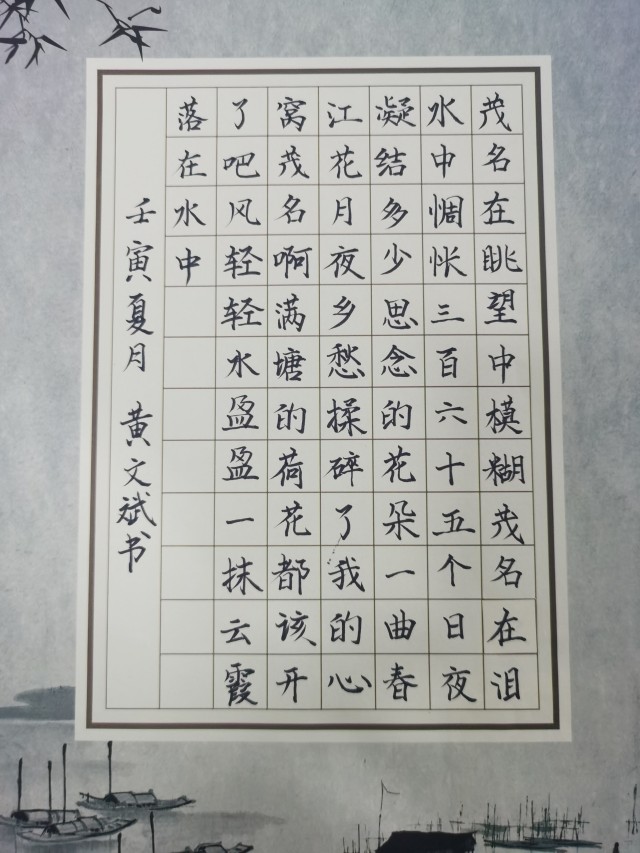 茂名在眺望中模糊茂名在泪
水中惆怅三百六十五个日夜
凝结多少思念的花朵一曲春
江花月夜乡愁揉碎了我的心
窝茂名啊满塘的荷花都该开
了吧风轻轻水盈盈一抹云霞
落在水中
壬寅夏月 黄文斌书